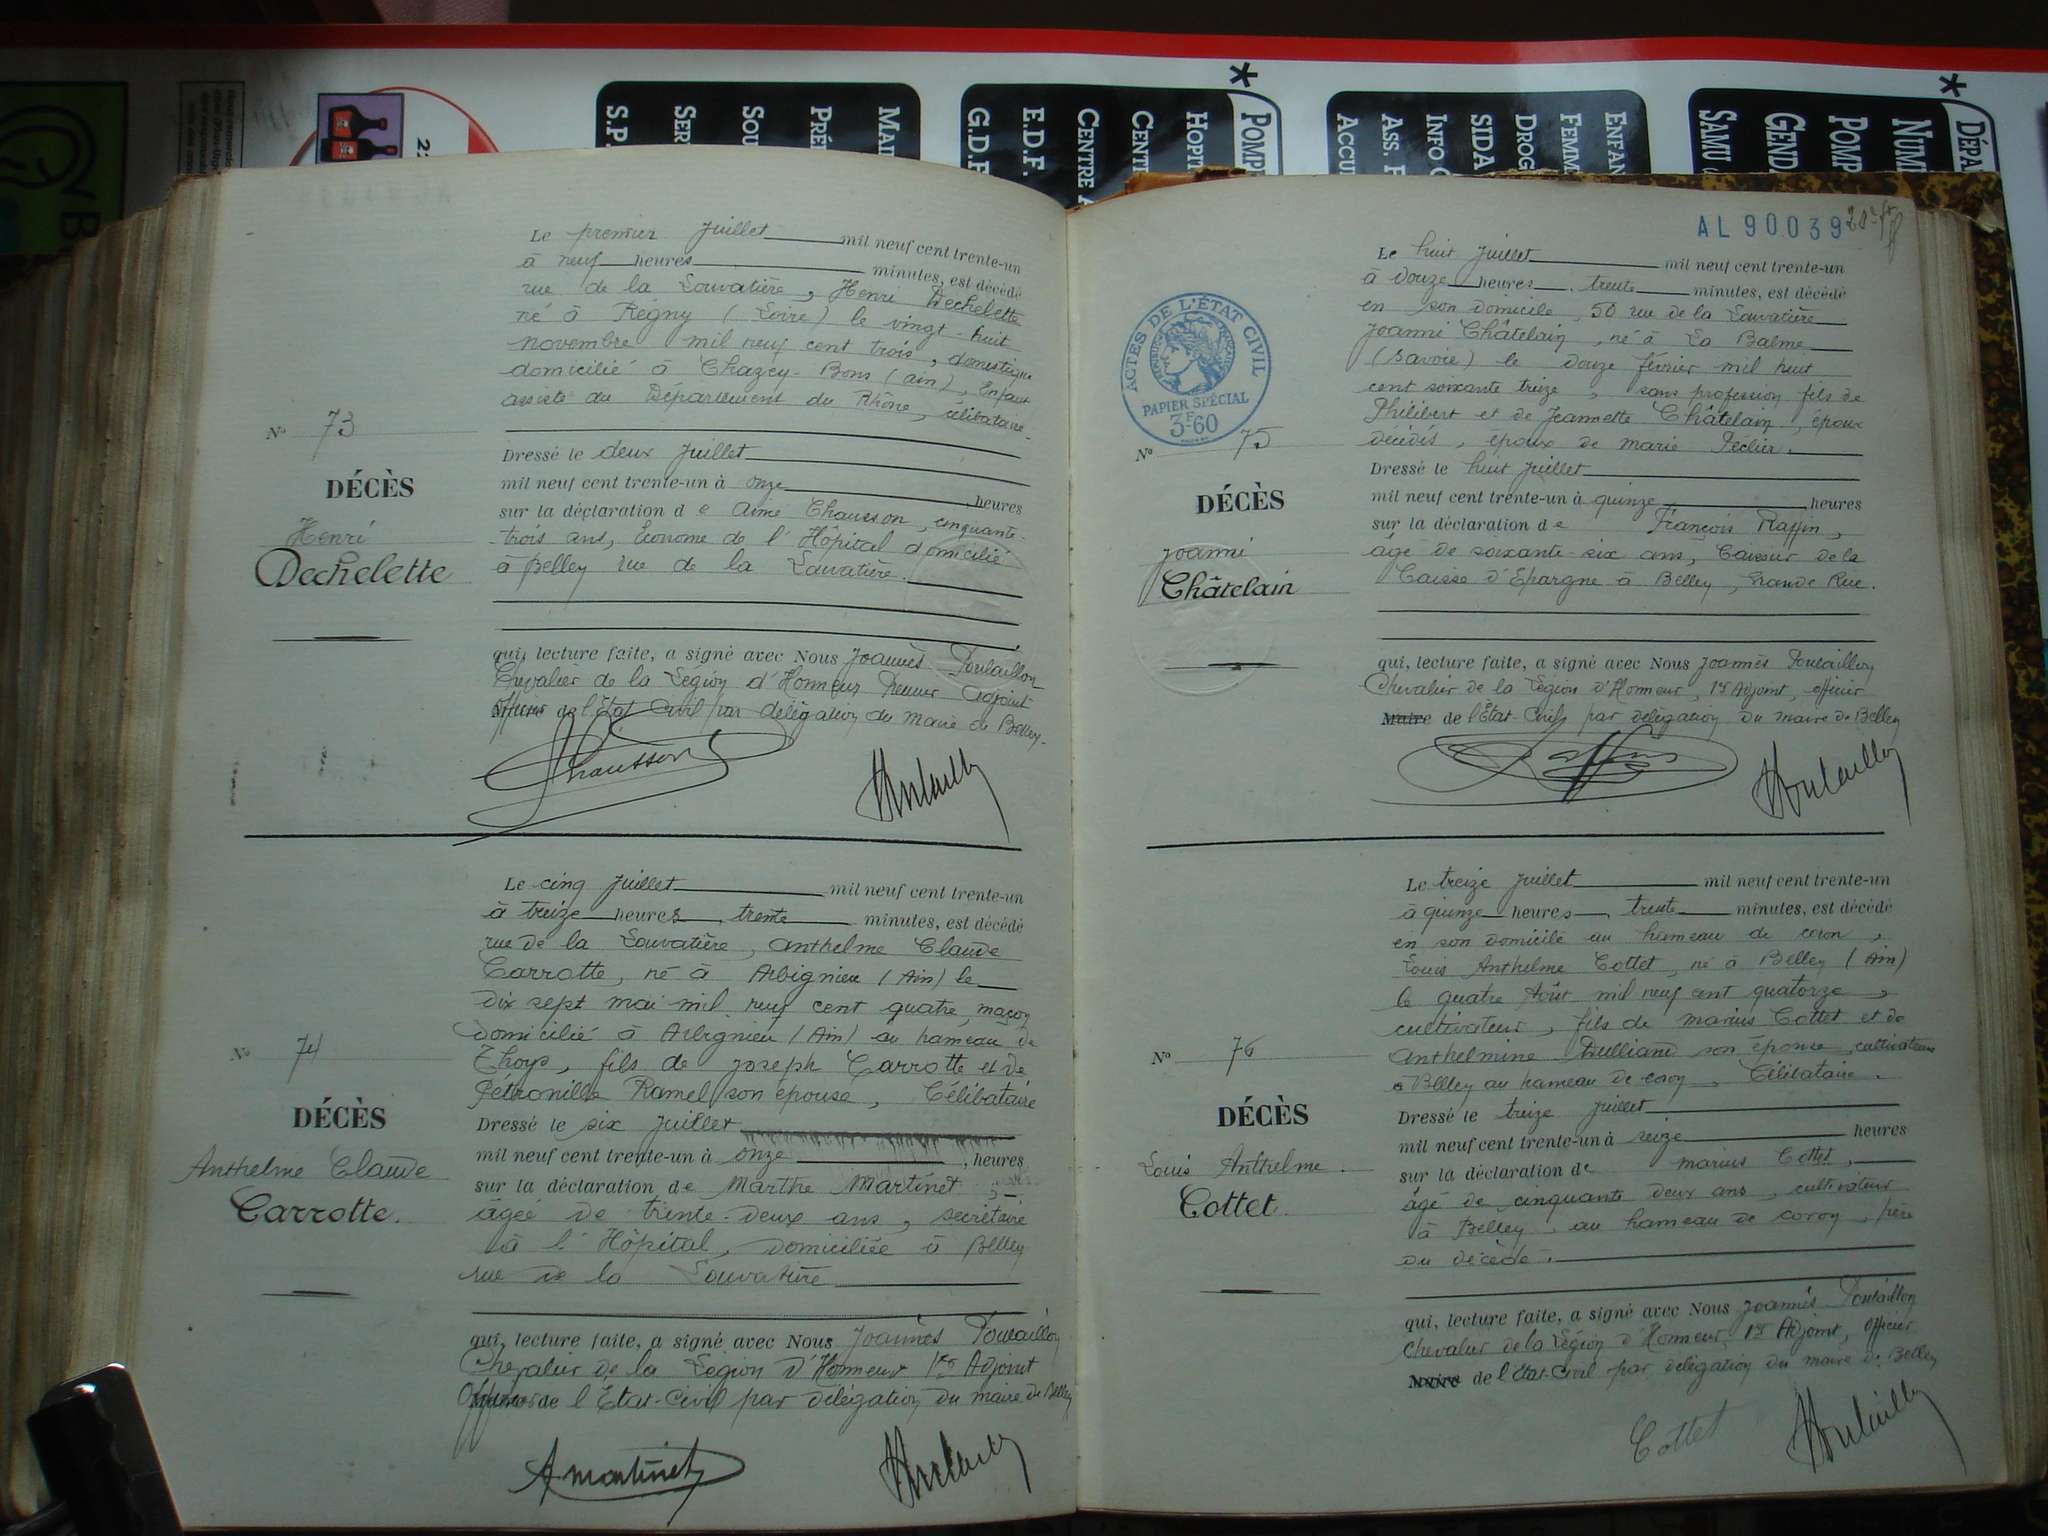 S.P.
SER
SOU
PRÉ
MAI
G.D.F.
E.D.F.
CENTRE A
CENT
HOPI
POMP
ACCU
ASS. F
INFO
SIDA
DROG
FEMME
ENFAN
SAMU
GENDA
POMP
NUM
DÉPA
Le premier Juillet mil neuf cent trente-un
à neuf heures minutes, est décédé
rue de la Louvatière, Henri Dechelette
né à Régny (Loire) le vingt-huit
novembre mil neuf cent trois, domestique
domicilié à Chazey-Bons (ain), Enfant
assisté du Département du Rhône, célibataire.
No 73
DÉCÈS
Henri
Dechelette
Dressé le deux Juillet
mil neuf cent trente-un à onze heures
sur la déclaration de Aimé Chausson, cinquante-
-trois ans, Econome de l'Hôpital domicilié
à Belley rue de la Louvatière.
qui, lecture faite, a signé avec Nous Joannès Poulaillon
Chevalier de la Légion d'Honneur Premier Adjoint
Officier de l'Etat Civil par délégation du maire de Belley.
Chausson
Le cinq Juillet mil neuf cent trente-un
à treize heures trente minutes, est décédé
rue de la Louvatière, Anthelme Claude
Carrotte, né à Arbignieu (Ain) le
dix sept mai mil neuf cent quatre, maçon
domicilié à Arbignieu (Ain) au hameau de
Thoys, fils de Joseph Carrotte et de
Pétronille Ramel son épouse, Célibataire
No 74
DÉCÈS
Anthelme Claude
Carrotte.
Dressé le six Juillet
mil neuf cent trente-un à onze, heures
sur la déclaration de Marthe Martinet,
âgée de trente-deux ans, secrétaire
à l'Hôpital, domiciliée à Belley
rue de la Louvatière
qui, lecture faite, a signé avec Nous Joannès Poulaillon
Chevalier de la Légion d'Honneur 1er Adjoint
Officier de l'Etat-Civil par délégation du maire de Belley
Martinet
AL 90039
Le huit Juillet mil neuf cent trente-un
à douze heures trente minutes, est décédé
en son domicile, 50 rue de la Louvatière
Joanni Châtelain, né à La Balme
(Savoie) le douze février mil huit
cent soixante treize, sans profession fils de
Philibert et de Jeannette Châtelain, époux
décédés, époux de marie Péclier.
ACTES DE L'ÉTAT CIVIL
PAPIER SPÉCIAL
3F60
No 75
DÉCÈS
Joanni
Châtelain
Dressé le huit Juillet
mil neuf cent trente-un à quinze, heures
sur la déclaration de François Raffin,
âgé de soixante-six ans, Caissier de la
Caisse d'Epargne à Belley, Grande Rue.
qui, lecture faite, a signé avec Nous Joannès Poulaillon
Chevalier de la Légion d'Honneur, 1er Adjoint, officier
Maire de l'Etat-Civil par délégation du maire de Belley
Poulaillon
Le treize Juillet mil neuf cent trente-un
à quinze heures, trente minutes, est décédé
en son domicile au hameau de coron,
Louis Anthelme Cottet, né à Belley (Ain)
le quatre Août mil neuf cent quatorze,
cultivateur, fils de marius Cottet et de
Anthelmine Dulliand son épouse, cultivateurs
à Belley au hameau de coron, Célibataire.
No 76
DÉCÈS
Louis Anthelme
Cottet.
Dressé le treize Juillet
mil neuf cent trente-un à seize heures
sur la déclaration de marius Cottet,
âgé de cinquante deux ans, cultivateur
à Belley au hameau de coron, père
du décédé.
qui, lecture faite, a signé avec Nous Joannès Poulaillon
Chevalier de la Légion d'Honneur 1er Adjoint, officier
Maire de l'Etat-Civil par délégation du maire de Belley
Cottet